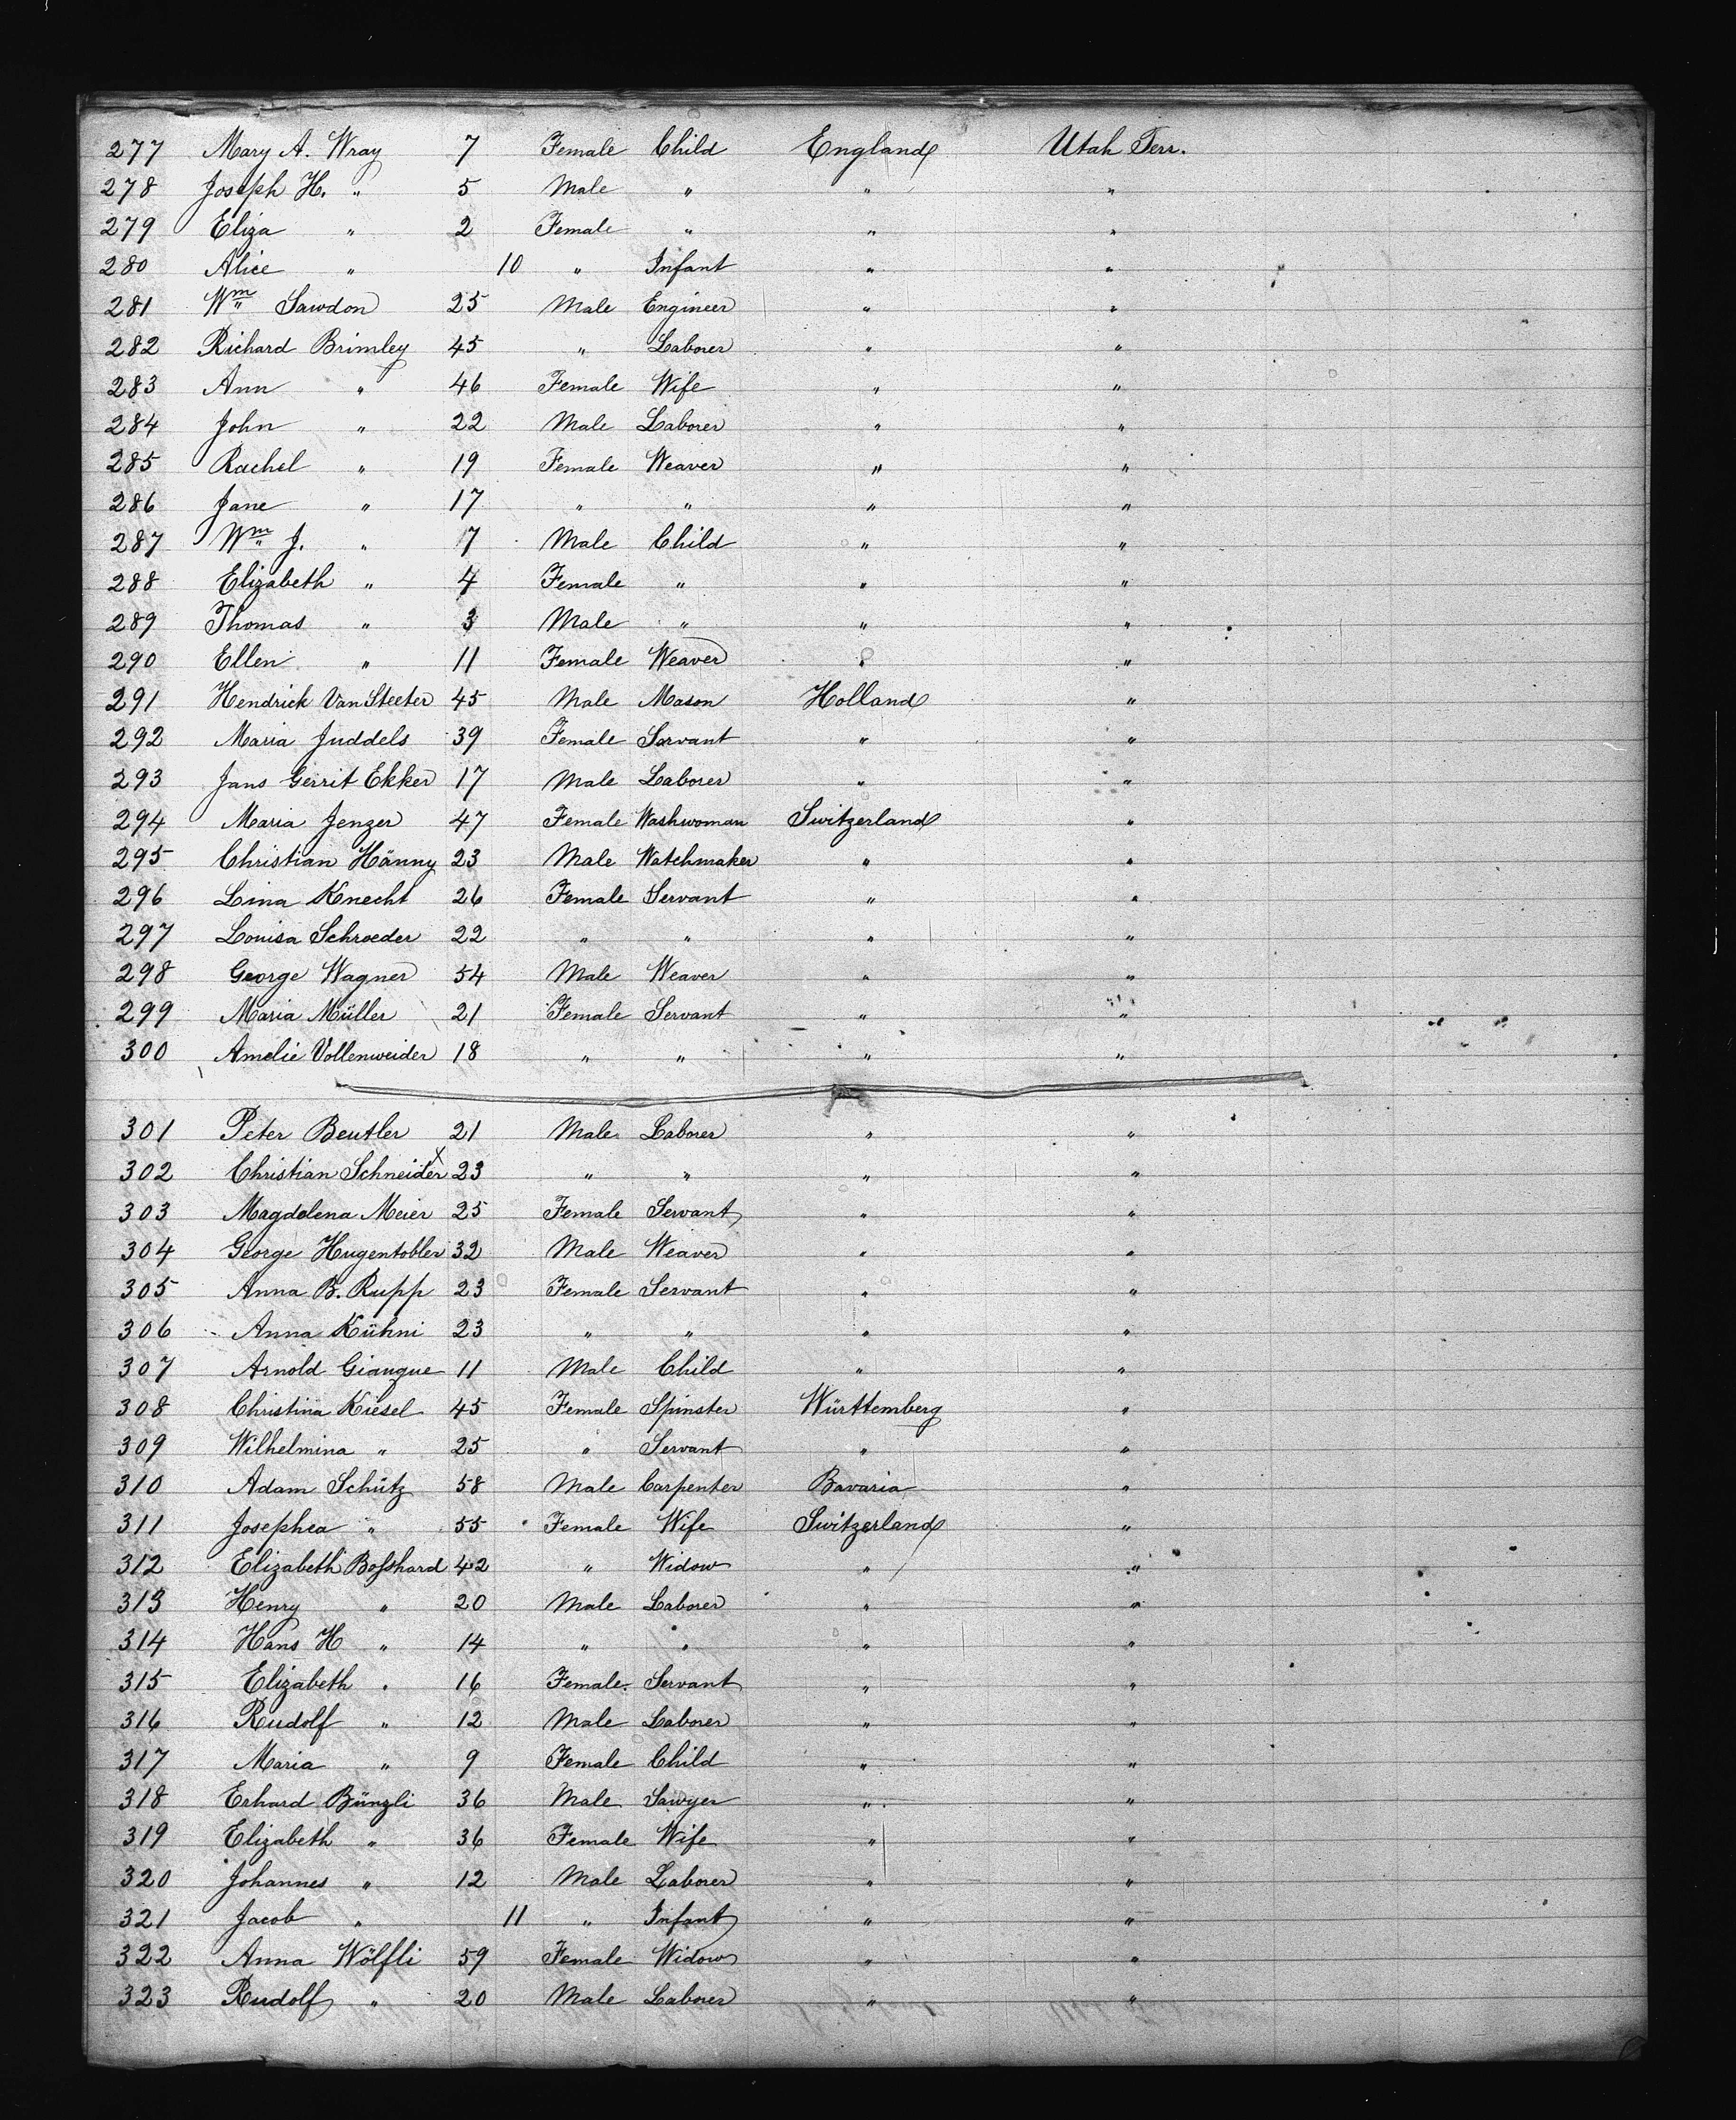 277 Mary A. Wray 7 Female Child England Utah Terr.
278 Joseph H. " 5 Male " " "
279 Eliza " 2 Female " " "
280 Alice " 10 " Infant " "
281 Wm Sawdon 25 Male Engineer " "
282 Richard Brimley 45 " Laborer " "
283 Ann " 46 Female Wife " "
284 John " 22 Male Laborer " "
285 Rachel " 19 Female Weaver " "
286 Jane " 17 " " " "
287 Wm J. " 7 Male Child " "
288 Elizabeth " 4 Female " " "
289 Thomas " 3 Male " " "
290 Ellen " 11 Female Weaver " "
291 Hendrick Van Steeter 45 Male Mason Holland "
292 Maria Juddels 39 Female Servant " "
293 Jans Gerrit Ekker 17 Male Laborer " "
294 Maria Jenzer 47 Female Washwoman Switzerland "
295 Christian Hänny 23 Male Watchmaker " "
296 Lina Knecht 26 Female Servant " "
297 Louisa Schroeder 22 " " " "
298 George Wagner 54 Male Weaver " "
299 Maria Müller 21 Female Servant " "
300 Amelie Vollenweider 18 " " " "
301 Peter Beutler 21 Male Laborer " "
302 Christian Schneider x 23 " " " "
303 Magdolena Meier 25 Female Servant " "
304 George Hugentobler 32 Male Weaver " "
305 Anna B. Rupp 23 Female Servant " "
306 Anna Kühni 23 " " " "
307 Arnold Giauque 11 Male Child " "
308 Christina Kiesel 45 Female Spinster Württemberg "
309 Wilhelmina " 25 " Servant " "
310 Adam Schütz 58 Male Carpenter Bavaria "
311 Josephea " 55 Female Wife Switzerland "
312 Elizabeth Boſshard 42 " Widow " "
313 Henry " 20 Male Laborer " "
314 Hans H " 14 " " " "
315 Elizabeth " 16 Female Servant " "
316 Rudolf " 12 Male Laborer " "
317 Maria " 9 Female Child " "
318 Erhard Bünzli 36 Male Sawyer " "
319 Elizabeth " 36 Female Wife " "
320 Johannes " 12 Male Laborer " "
321 Jacob " 11 " Infant " "
322 Anna Wölfli 59 Female Widow " "
323 Rudolf " 20 Male Laborer " "